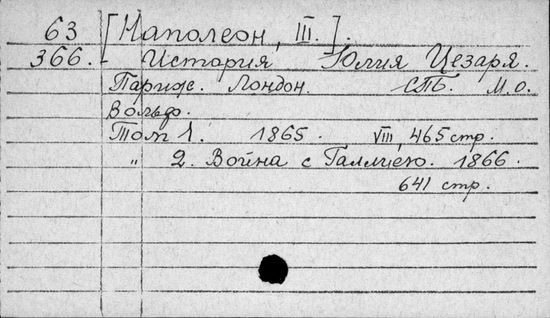 63 [Наполеон, III.].
366. История Юлия Цезаря.
Париж. Лондон. СПБ. М.О.
Вольф.
Том 1. 1865. VIII, 465 стр.
" 2. Война с Галлиею. 1866.
641 стр.